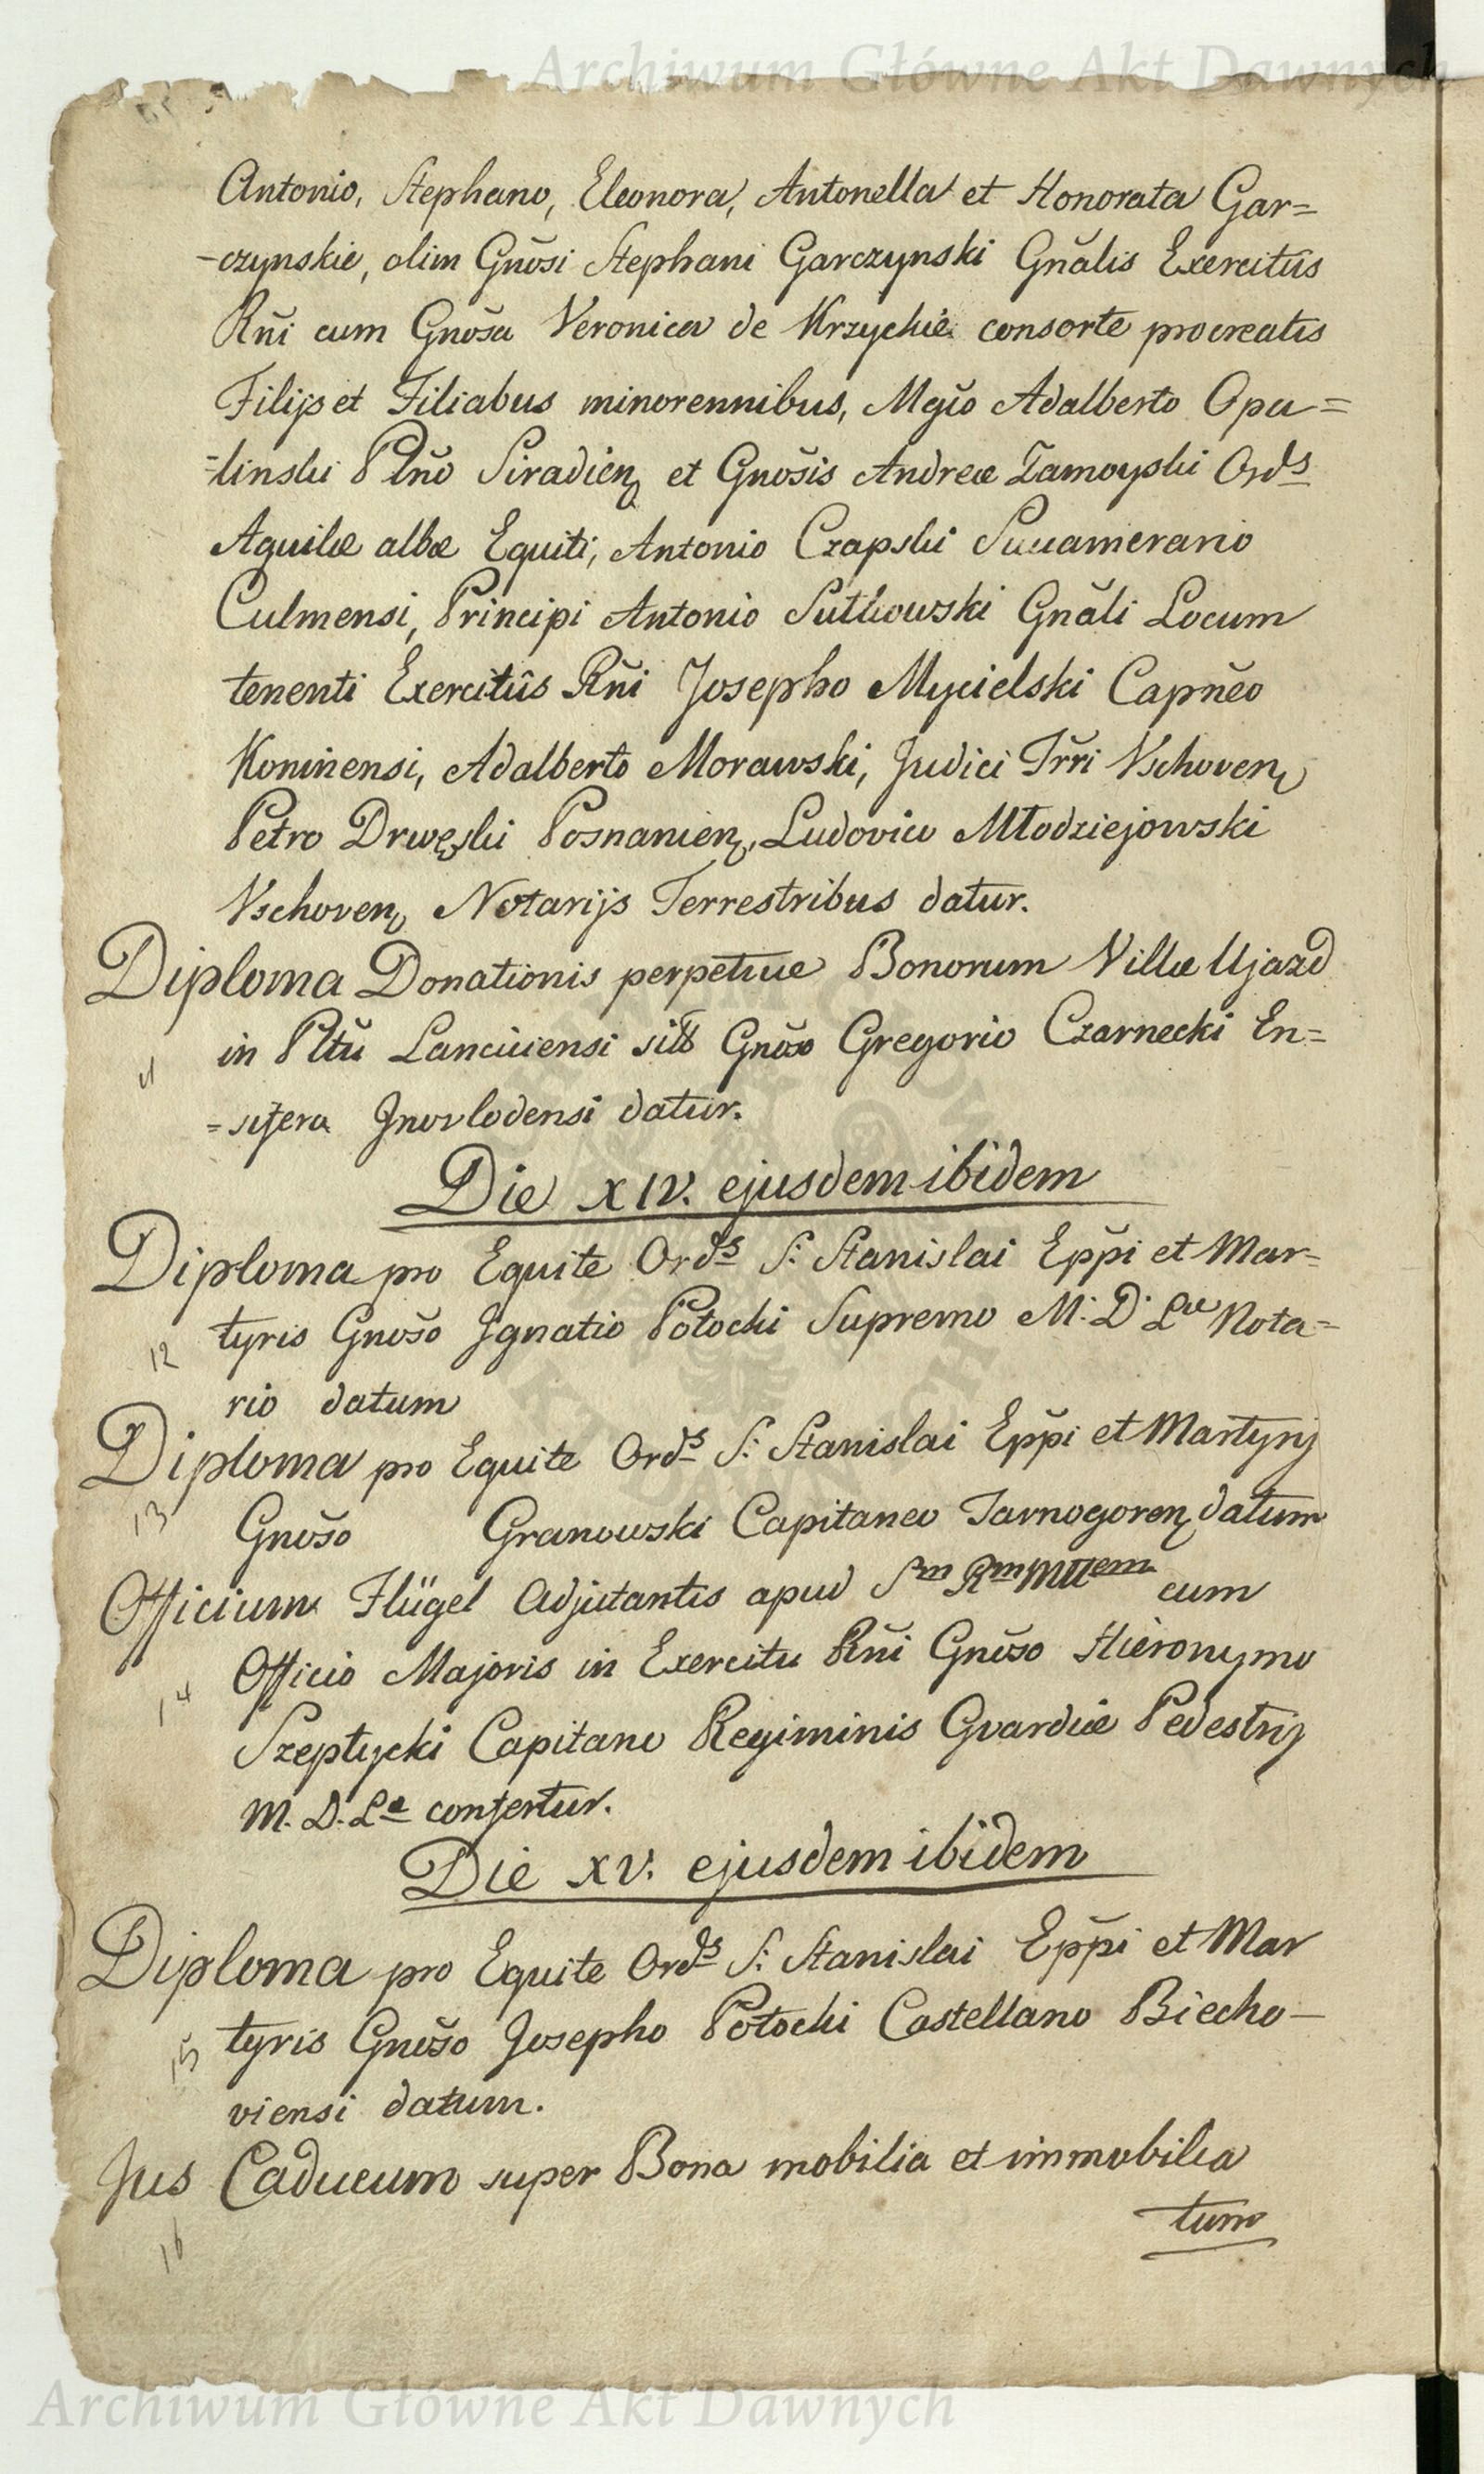 Archiwum Główne Akt Dawnych
Antonio, Stephano, Eleonora, Antonella et Honorata Gar=
-czynskie, olim Gnŏsi Stephani Garczynski Gnălis Exercitûs
Rňi cum Gnŏsa Veronica de Krzyckie consorte procreatis
Filijs et Filiabus minorennibus, Mgňo Adalberto Opa=
=linski Plňo Siradien et Gnŏsis Andreæ Zamoyski Ords
Aquilæ albæ Equiti, Antonio Czapski Succamerario
Culmensi, Principi Antonio Sułkowski Gnăli Locum
tenenti Exercitûs Rňi Josepho Mycielski Capnĕo
Koninensi, Adalberto Morawski, Judici Trři Vschoven
Petro Drwęski Posnanien, Ludovico Młodziejowski
Vschoven Notarijs Terrestribus datur.
Diploma Donationis perpetuæ Bonorum Villæ Ujazd
in Pltŭ Lanciciensi sitt Gnŏso Gregorio Czarnecki En=
11
=sifero Inovlodensi datur.
Die XIV. ejusdem ibidem
Diploma pro Equite Ords S: Stanislai Epp̌i et Mar=
tyris Gnŏso Ignatio Potocki Supremo M: D: Læ Nota=
12
rio datum
Diploma pro Equite Ords S: Stanislai Epp̌i et Martyrij
13
Gnŏso Granowski Capitaneo Tarnogoren datum
Officium Flügel Adjutantis apud Sm Rm Mttem cum
Officio Majoris in Exercitu Rňi Gnŏso Hieronymo
14
Szeptycki Capitano Regiminis Gvardiæ Pedestrij
M. D. Læ confertur.
Die XV. ejusdem ibidem
Diploma pro Equite Ords S: Stanislai Epp̌i et Mar
tyris Gnŏso Josepho Potocki Castellano Biecho-
15
viensi datum.
Jus Caducum super Bona mobilia et immobilia
16
tum
Archiwum Główne Akt Dawnych